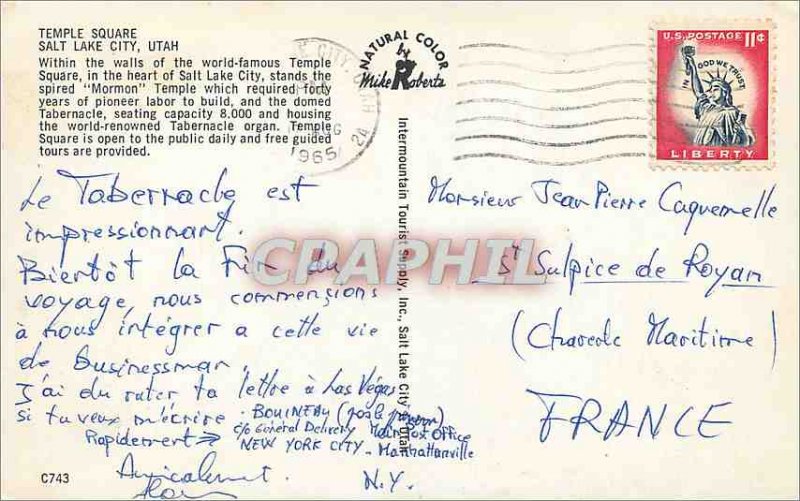 TEMPLE SQUARE
SALT LAKE CITY, UTAH
Within the walls of the world-famous Temple
Square, in the heart of Salt Lake City, stands the
spired "Mormon" Temple which required forty
years of pioneer labor to build, and the domed
Tabernacle, seating capacity 8.000 and housing
the world-renowned Tabernacle organ. Temple
Square is open to the public daily and free guided
tours are provided.
Le Tabernacle est
impressionnant.
Bientôt la Fin du
voyage, nous commençions
à nous intégrer a cette vie
de Businessman.
J'ai du rater ta lettre à Las Végas,
si tu veux m'écrire
Rapidement → BOUINEAU
c/o General Delivery Main Post Office
NEW YORK CITY - Manhattanville
N.Y.
Amicalement
C743
NATURAL COLOR
by
Mike Roberts
Intermountain Tourist Supply, Inc., Salt Lake City, Utah
CITY, UTAH
AUG
24
1965
U.S. POSTAGE 11¢
IN GOD WE TRUST
LIBERTY
Monsieur Jean Pierre Caquemelle
St Sulpice de Royan
(Charente Maritime)
FRANCE
CPRAPHIL